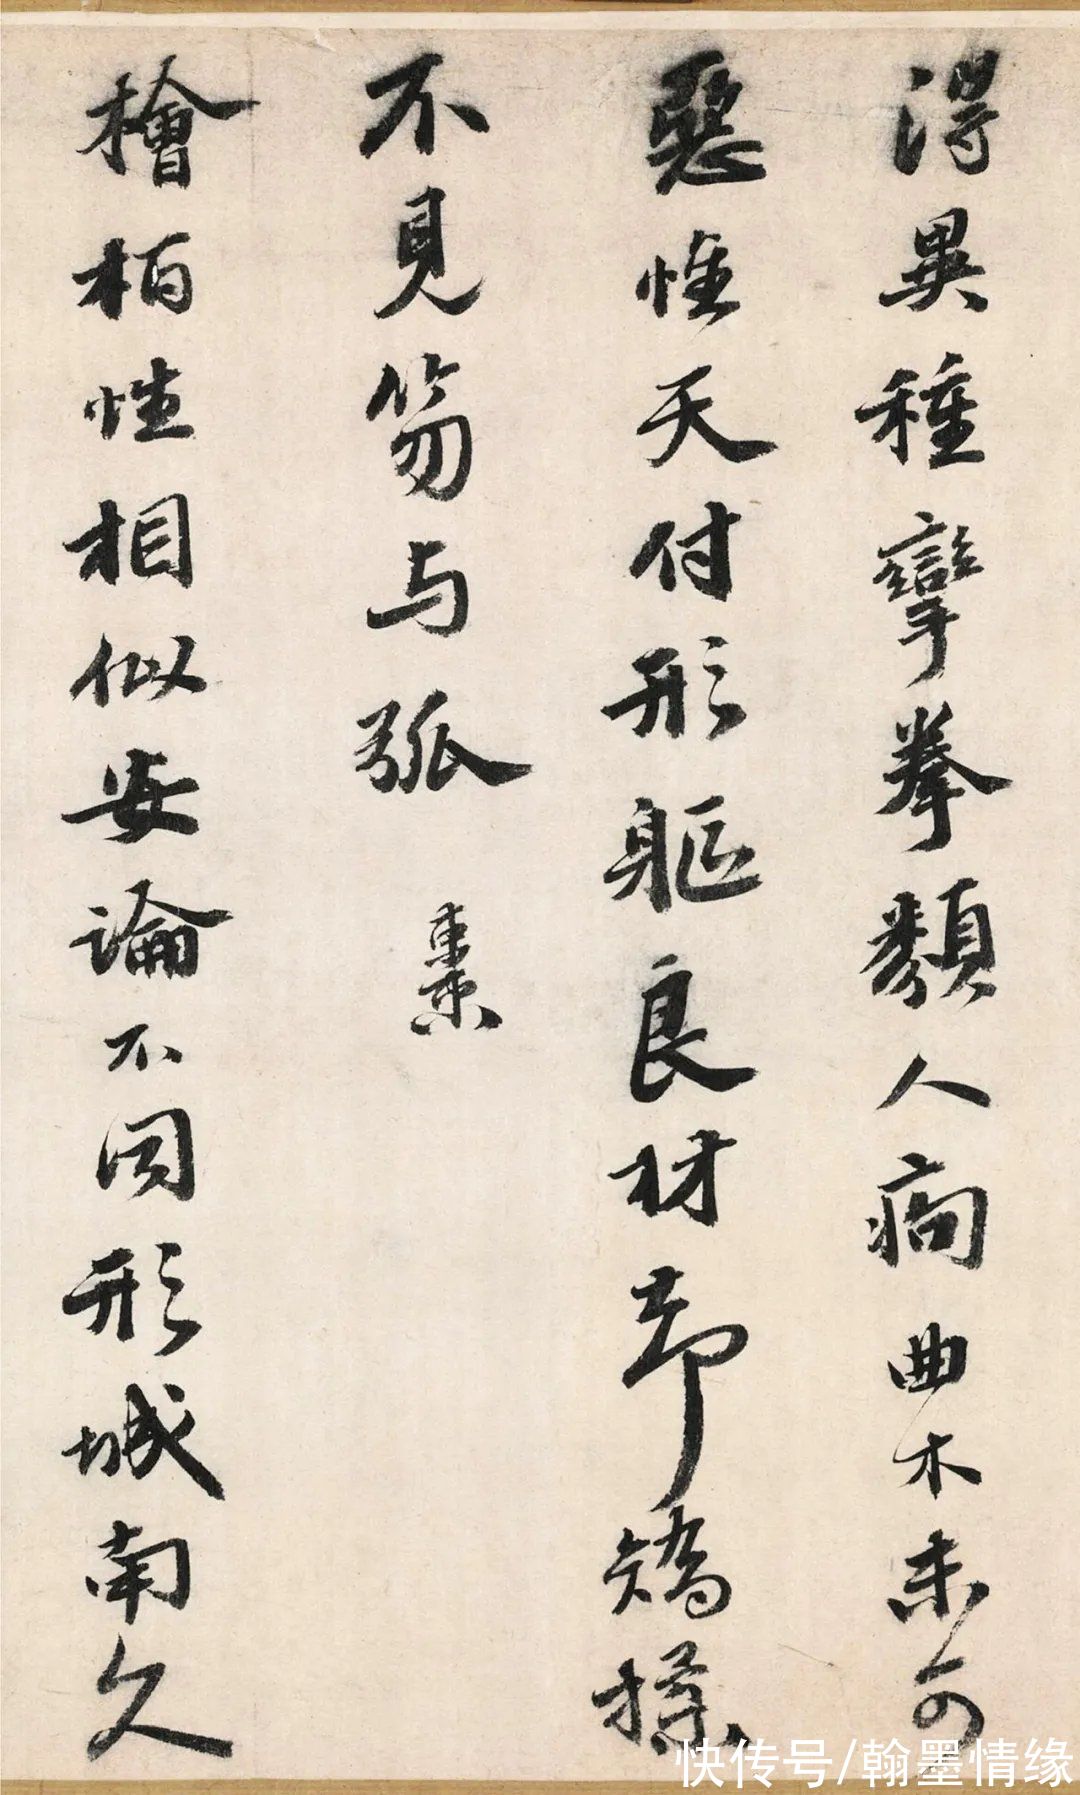 得異種攣拳類人痀曲木未可
惡惟天付形軀良材却矯揉
不見笏与弧 棗
檜柏性相似安論不同形城南久
快传号/翰墨情缘